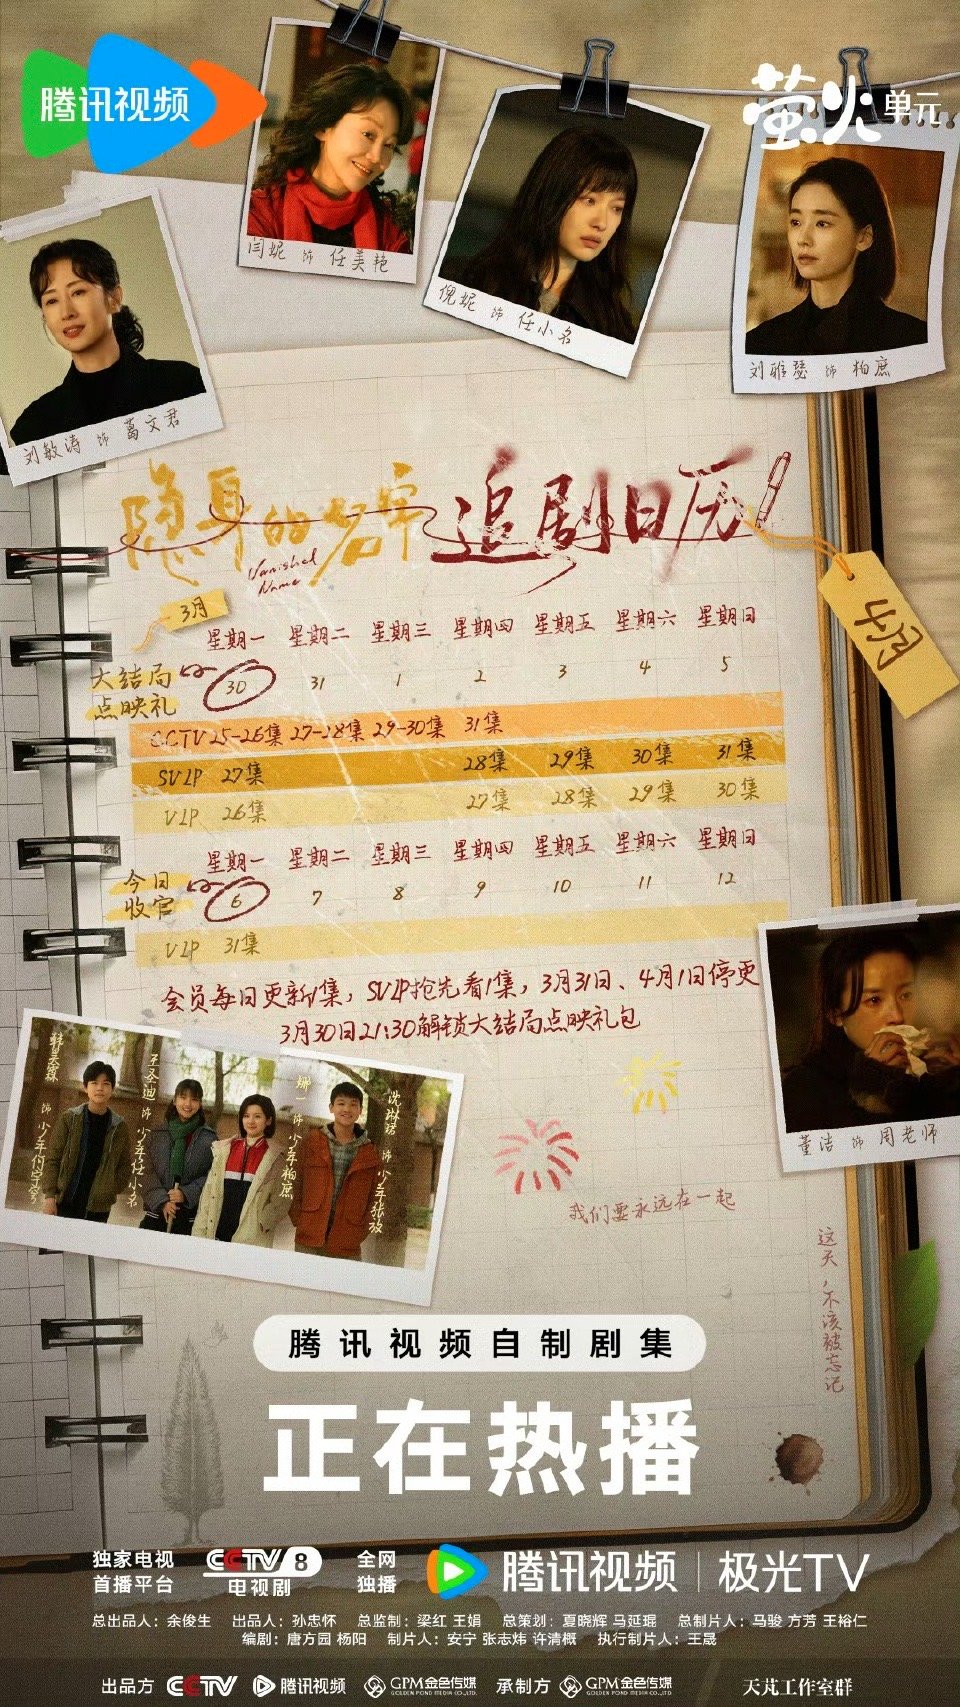 腾讯视频
萤火单元
闫妮 饰 任美艳
倪妮 饰 任小名
刘雅瑟 饰 柏庶
刘敏涛 饰 葛文君
隐身的名字 追剧日历
Vanished Name
3月
4月
星期一 星期二 星期三 星期四 星期五 星期六 星期日
大结局点映礼 30 31 1 2 3 4 5
CCTV 25-26集 27-28集 29-30集 31集
SVIP 27集 28集 29集 30集 31集
VIP 26集 27集 28集 29集 30集
星期一 星期二 星期三 星期四 星期五 星期六 星期日
今日收官 6 7 8 9 10 11 12
VIP 31集
会员每日更新1集，SVIP抢先看1集，3月31日、4月1日停更
3月30日21:30解锁大结局点映礼包
韩昊霖 饰 少年何宇穹
王圣迪 饰 少年任小名
娜一 饰 少年柏庶
饰 少年张放
董洁 饰 周老师
我们要永远在一起
这天，不该被忘记
腾讯视频自制剧集
正在热播
独家电视首播平台 CCTV 8 电视剧 全网独播 腾讯视频 | 极光TV
总出品人：余俊生 出品人：孙忠怀 总监制：梁红 王娟 总策划：夏晓辉 马延琨 总制片人：马骏 方芳 王裕仁
编剧：唐方园 杨阳 制片人：安宁 张志炜 许清概 执行制片人：王晟
出品方 CCTV 腾讯视频 GPM金色传媒 GOLDEN POND MEDIA CO.,LTD. 承制方 GPM金色传媒 GOLDEN POND MEDIA CO.,LTD. 天芃工作室群